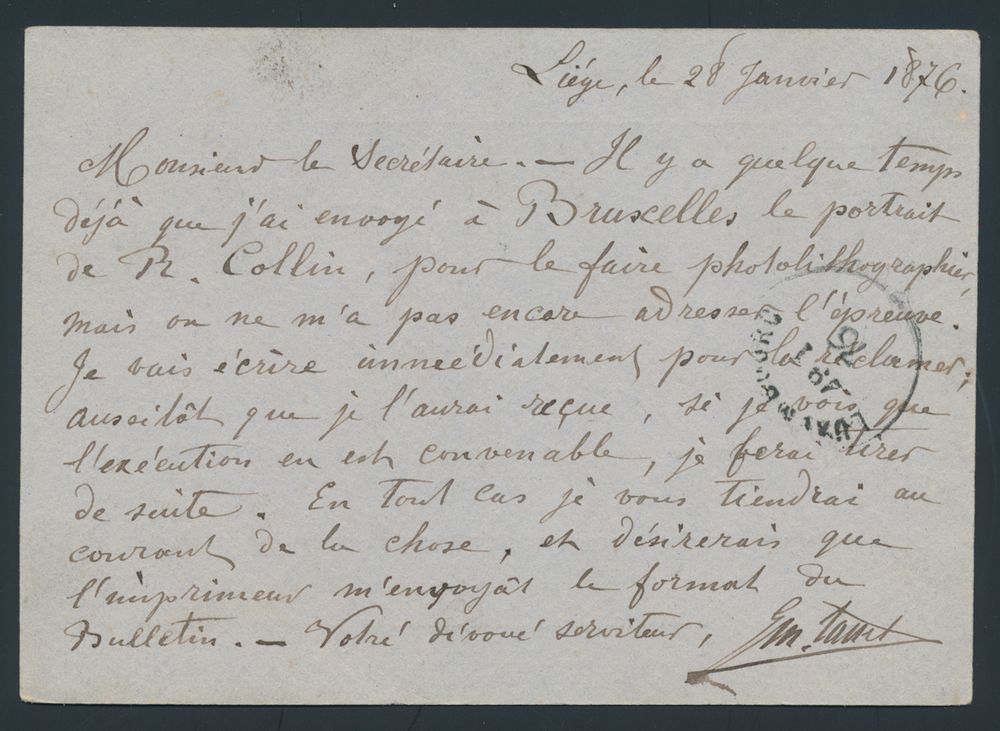 Liége, le 28 Janvier 1876.
Monsieur le Secrétaire. — Il y a quelque temps
déjà que j'ai envoyé à Bruxelles le portrait
de R. Collin, pour le faire photolithographier,
mais on ne m'a pas encore adresser l'épreuve.
Je vais écrire immédiatement pour la réclamer;
aussitôt que je l'aurai reçue, si je vois que
l'exécution en est convenable, je ferai tirer
de suite. En tout cas je vous tiendrai au
courant de la chose, et désirerais que
l'imprimeur m'envoyât le format du
Bulletin. — Votre dévoué serviteur,
LUXEMBOURG